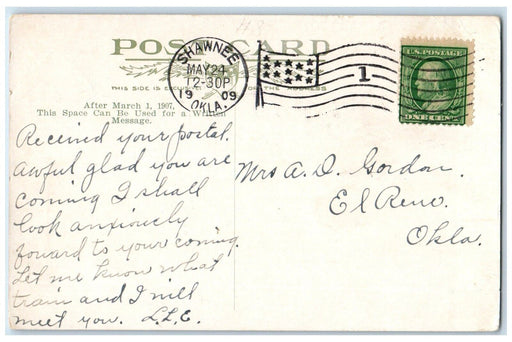 H8
POST CARD
SHAWNEE
MAY 24
12-30P
19 09
OKLA.
1
U.S. POSTAGE
ONE CENT
THIS SIDE IS EXCLUSIVELY FOR THE ADDRESS
After March 1, 1907,
This Space Can Be Used for a Written
Message.
Received your postal.
Awful glad you are
coming I shall
look anxiously
foward to your coming.
Let me know what
train and I will
meet you. L.L.C.
Mrs A. D. Gordon.
El Reno.
Okla.